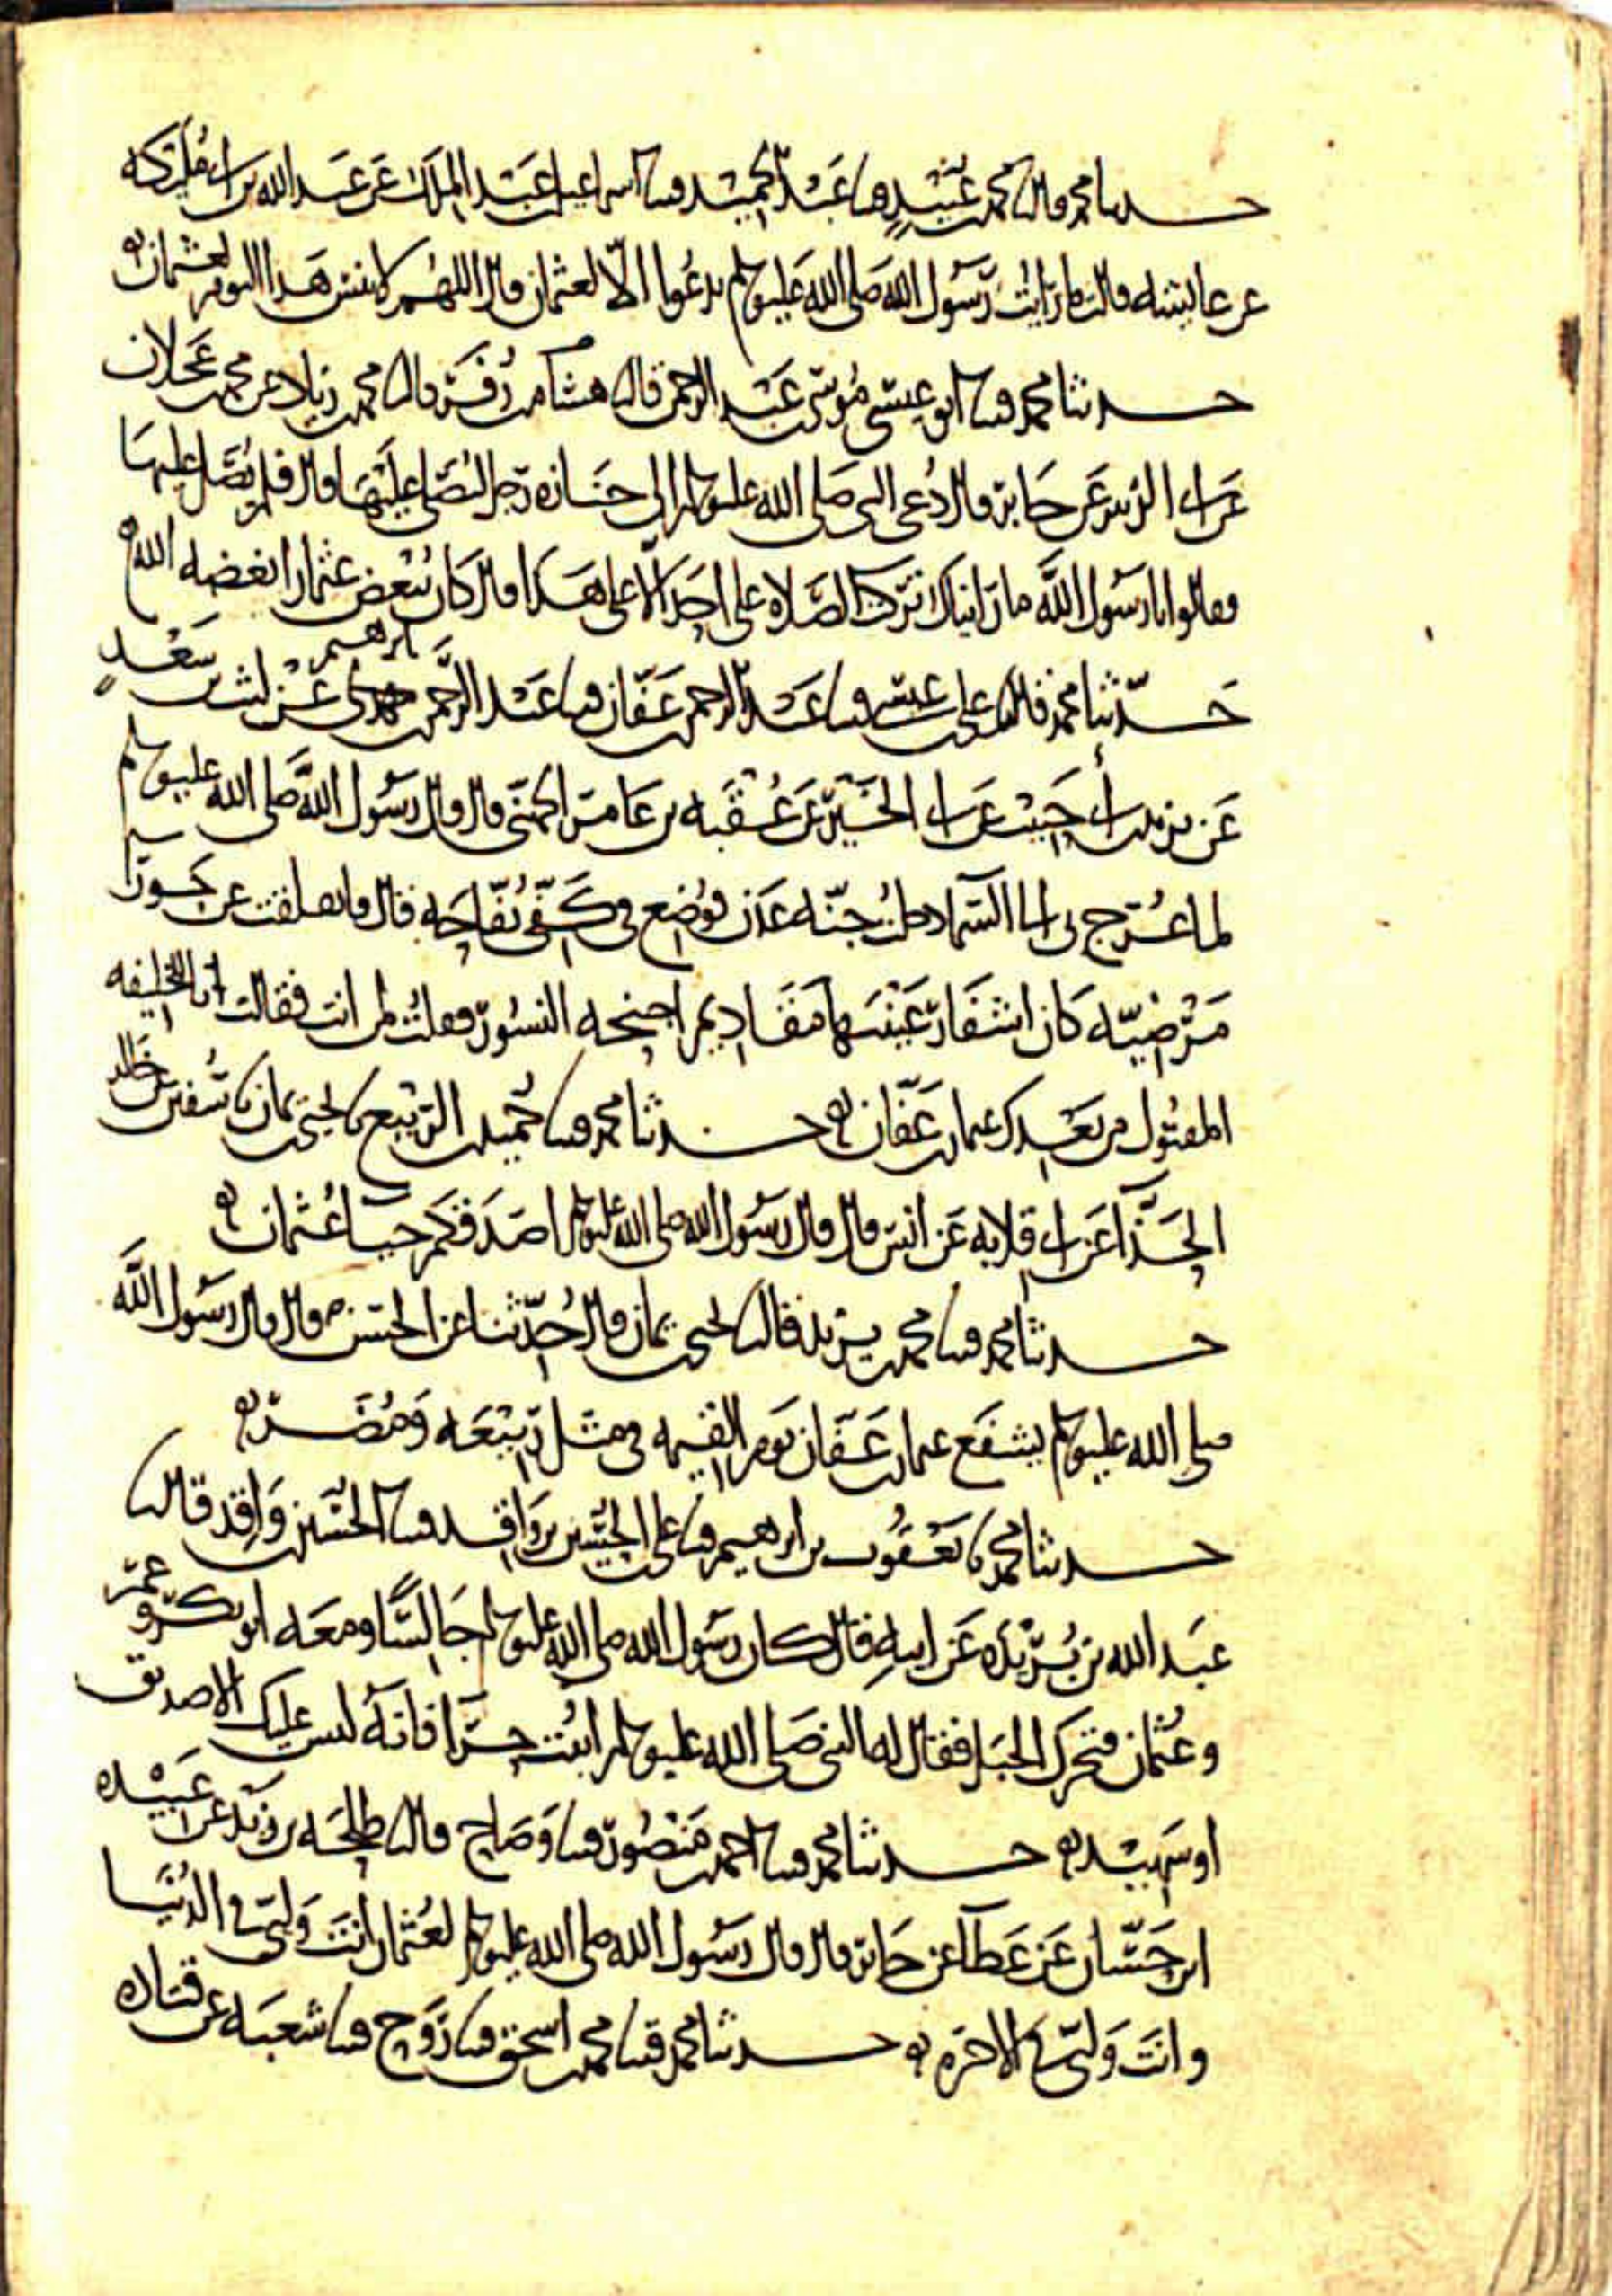 حدثنا محمد قال محمد بن عبيد وثنا عبد الحميد وثنا اسماعيل بن عبد الملك عن عبد الله بن ابى مليكه
عن عايشه قالت ما رايت رسول الله صلى الله عليه وسلم يدعوا الا لعثمان قال اللهم لا تنس هذا اليوم لعثمان
حدثنا محمد وثنا ابو عيسى موسى بن عبد الرحمن قال هشام بن قال محمد بن زياد عن محمد بن عجلان
عن ابى الزبير عن جابر قال دعى النبى صلى الله عليه وسلم الى جنازه رجل ليصلى عليها قال فلم يصل عليها
وقالوا يا رسول الله ما رايناك تركت الصلاه على احد الا على هذا قال كان يبغض عثمان ابغضه الله
حدثنا محمد قال على بن عيسى وثنا عبد الرحمن بن عفان وثنا عبد الرحمن بن ابرهيم عن ليث بن سعد
عن يزيد بن ابى حبيب عن ابى الخير عن عقبه بن عامر الجهنى قال قال رسول الله صلى الله عليه وسلم
لما عرج بى الى السماء دخلت جنه عدن فوضع فى كفى تفاحه قال فانفلقت عن حورا
مرضيه كان اشفار عينيها مقاديم اجنحه النسور فقلت لمن انت فقالت انا للخليفه
المقتول من بعدك عثمان بن عفان حدثنا محمد وثنا حميد بن الربيع نا يحيى بن يمان نا سفين عن خالد
الحذا عن ابى قلابه عن انس قال قال رسول الله صلى الله عليه وسلم اصدقكم حيا عثمان
حدثنا محمد وثنا محمد بن يزيد قال يحيى بن يمان قال حدثنا عن الحسن قال قال رسول الله
صلى الله عليه وسلم يشفع عثمان بن عفان يوم القيمه فى مثل ربيعه ومضر
حدثنا محمد نا يعقوب بن ابرهيم وثنا على بن الحسين بن واقد وثنا الحسين بن واقد قال
عبد الله بن بريده عن ابيه قال كان رسول الله صلى الله عليه وسلم جالسا ومعه ابو بكر وعمر
وعثمان فتحرك الجبل فقال له النبى صلى الله عليه وسلم اثبت حرا فانه ليس عليك الا صديق
او شهيد حدثنا محمد وثنا احمد بن منصور وثنا وضاح قال طلحه بن زيد عن عبيده
ابن حسان عن عطا عن جابر قال قال رسول الله صلى الله عليه وسلم لعثمان انت وليى فى الدنيا
وانت وليى فى الاخره حدثنا محمد وثنا محمد بن اسحق وثنا روح وثنا شعبه عن قتاده